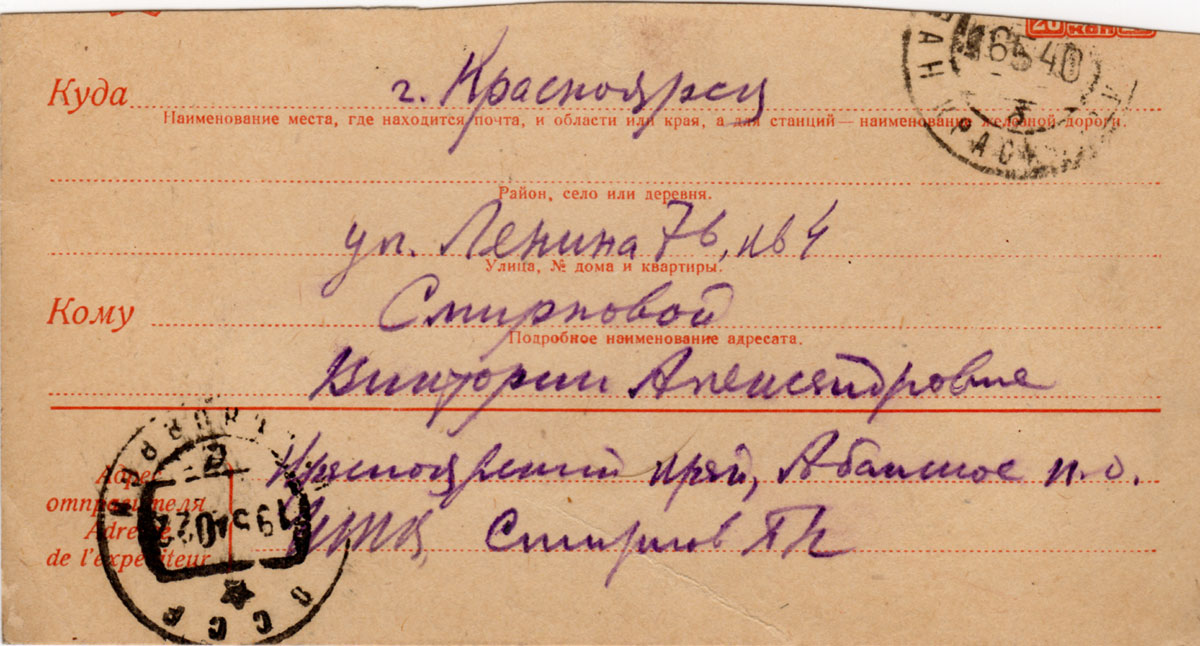 20 коп
16 5 40
Куда г. Красноярск
Наименование места, где находится почта, и области или края, а для станций — наименование железной дороги.
Район, село или деревня.
ул. Ленина 76, кв 4
Улица, № дома и квартиры.
Кому Смирновой
Подробное наименование адресата.
Виктории Александровне
Адрес отправителя
Adresse de l'expéditeur
Красноярский край, Абанское п.о.
Смирнов
19 5 40 22
СССР